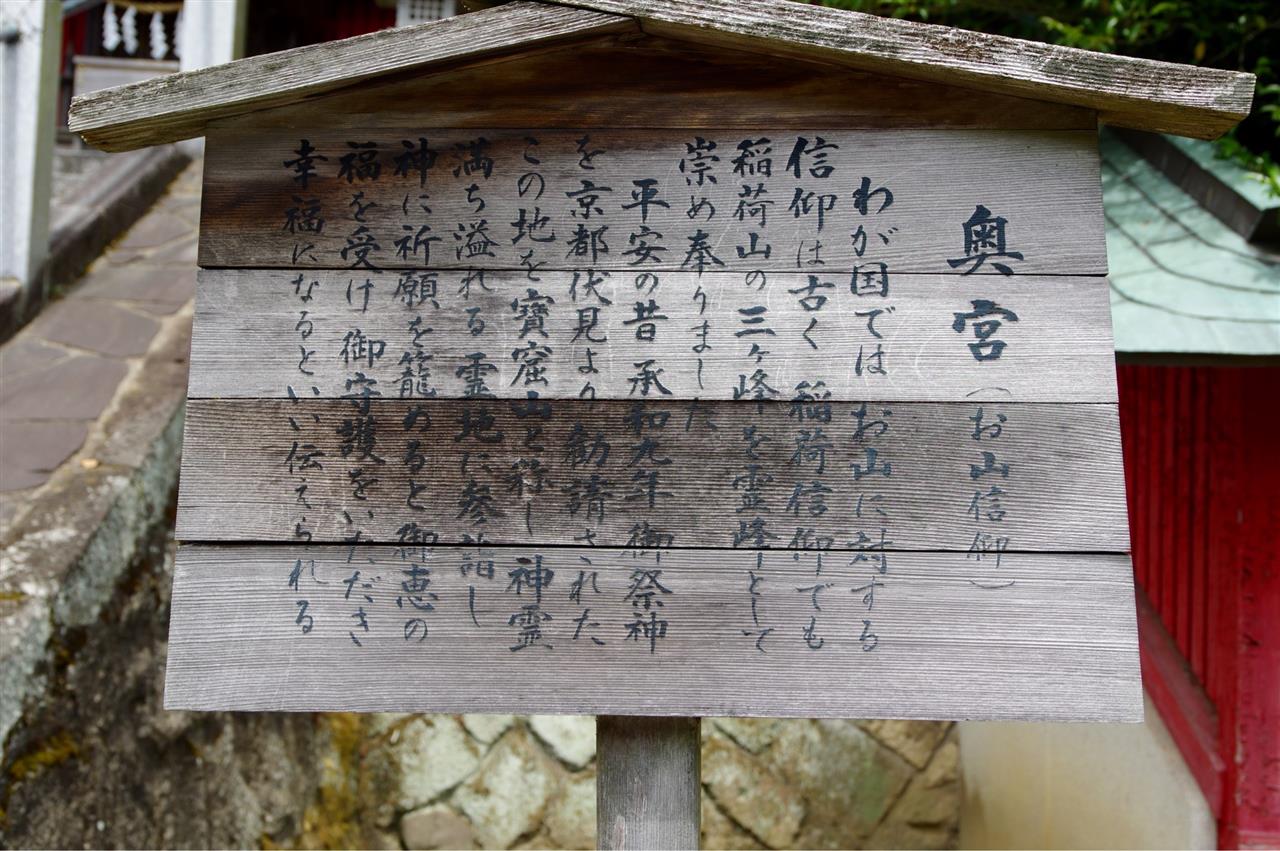 奥宮（お山信仰）
わが国では お山に対する
信仰は古く 稲荷信仰でも
稲荷山の三ヶ峰を霊峰として
崇め奉りました
平安の昔 承和九年 御祭神
を京都伏見より勧請された
この地を寶窟山と称し 神霊
満ち溢れる 霊地に参詣し
神に祈願を籠めると御恵の
福を受け 御守護をいただき
幸福になるといい伝えられる